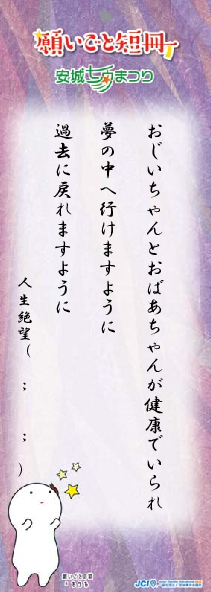 願いごと短冊
安城七夕まつり
おじいちゃんとおばあちゃんが健康でいられ
夢の中へ行けますように
過去に戻れますように
人生絶望( ; ; )
JCI